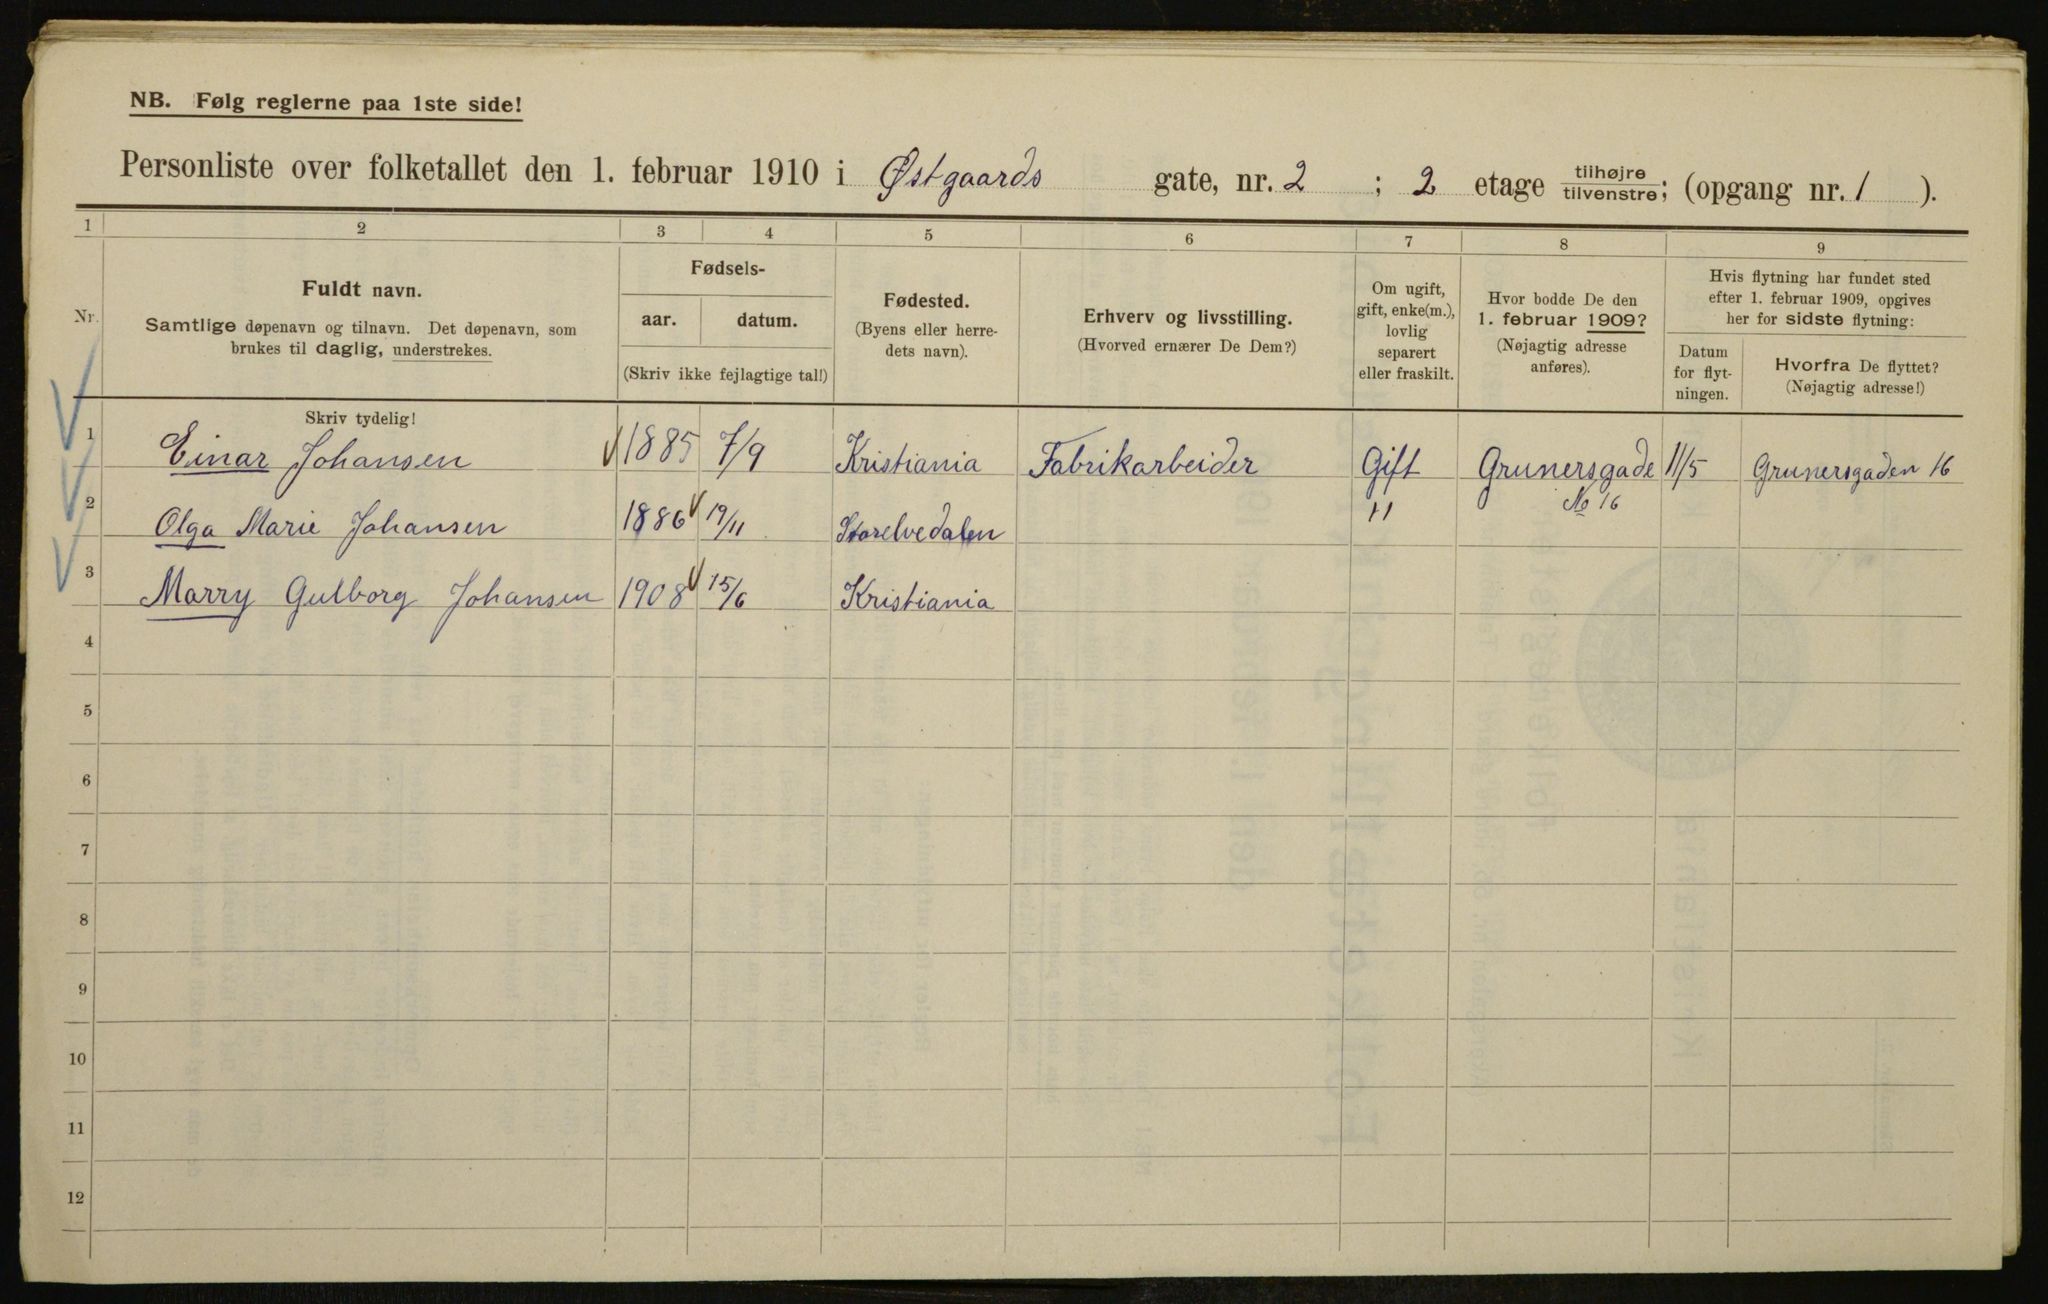 NB. Følg reglerne paa 1ste side!
Personliste over folketallet den 1. februar 1910 i Østgaards gate, nr. 2 ; 2 etage tilhøjre tilvenstre; (opgang nr. 1 ).
1 2 3 4 5 6 7 8 9
Nr.
Fuldt navn.
Samtlige døpenavn og tilnavn. Det døpenavn, som
brukes til daglig, understrekes.
Fødsels-
aar. datum.
(Skriv ikke fejlagtige tal!)
Fødested.
(Byens eller herre-
dets navn).
Erhverv og livsstilling.
(Hvorved ernærer De Dem?)
Om ugift,
gift, enke(m.),
lovlig
separert
eller fraskilt.
Hvor bodde De den
1. februar 1909?
(Nøjagtig adresse
anføres).
Hvis flytning har fundet sted
efter 1. februar 1909, opgives
her for sidste flytning:
Datum
for flyt-
ningen.
Hvorfra De flyttet?
(Nøjagtig adresse!)
Skriv tydelig!
1 Einar Johansen 1885 7/9 Kristiania Fabrikarbeider Gift Grunersgade No 16 11/5 Grunersgaden 16
2 Olga Marie Johansen 1886 19/11 Storelvedalen "
3 Marry Gulborg Johansen 1908 15/6 Kristiania
4
5
6
7
8
9
10
11
12